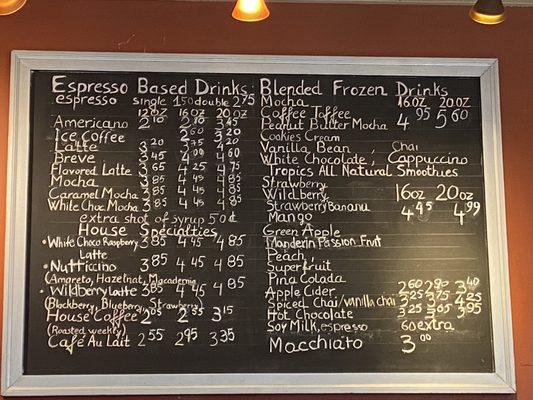 Espresso Based Drinks
espresso single 1 50 double 2 75
12oz 16oz 20oz
Americano
Ice Coffee 2 60 3 20
Latte 3 20 3 75
Breve 3 45 4 00 4 60
Flavored Latte 3 65 4 25 4 75
Mocha 3 85 4 45 4 85
Caramel Mocha 3 85 4 45 4 85
White Choc Mocha 3 85 4 45 4 85
extra shot of syrup 50¢
House Specialties
• White Choco Raspberry 3 85 4 45 4 85
Latte
• Nutticcino 3 85 4 45 4 85
(Amareto, Hazelnut, Macademia
• Wildberry Latte 3 85 4 45 4 85
(Blackberry, Blueberry, Strawberry)
House Coffee 2 05 2 55 3 15
(Roasted weekly)
Café Au Lait 2 55 2 95 3 35
Blended Frozen Drinks
Mocha 16oz 20oz
Coffee Toffee 4 95 5 60
Peanut Butter Mocha
Cookies Cream
Vanilla Bean Chai
White Chocolate, Cappuccino
Tropics All Natural Smoothies
Strawberry
Wildberry 16oz 20oz
Strawberry Banana 4 45 4 99
Mango
Green Apple
Mandarin Passion Fruit
Peach
Superfruit
Pina Colada
Apple Cider 2 60 2 90 3 40
Spiced Chai/vanilla chai 3 25 3 75 4 25
Hot Chocolate 3 25 3 65 3 95
Soy Milk, espresso 60 extra
Macchiato 3 00